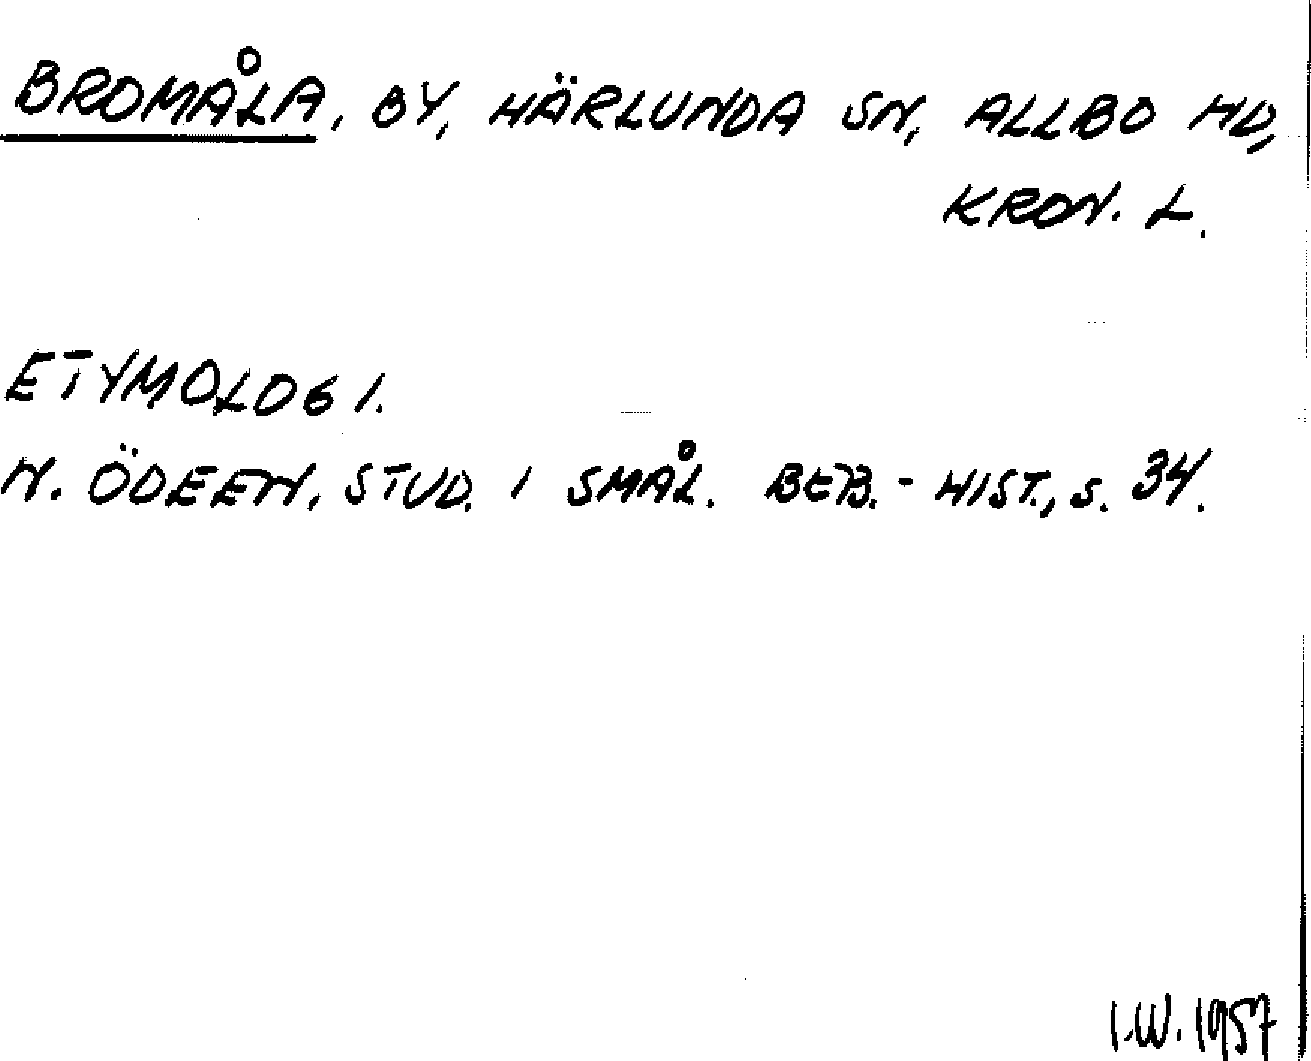 BROMÅLA, BY, HÄRLUNDA SN, ALLBO HD,
KRON. L.
ETYMOLOGI.
N. ÖDEEN, STUD. I SMÅL. BEB.-HIST., S. 34.
I.W. 1957